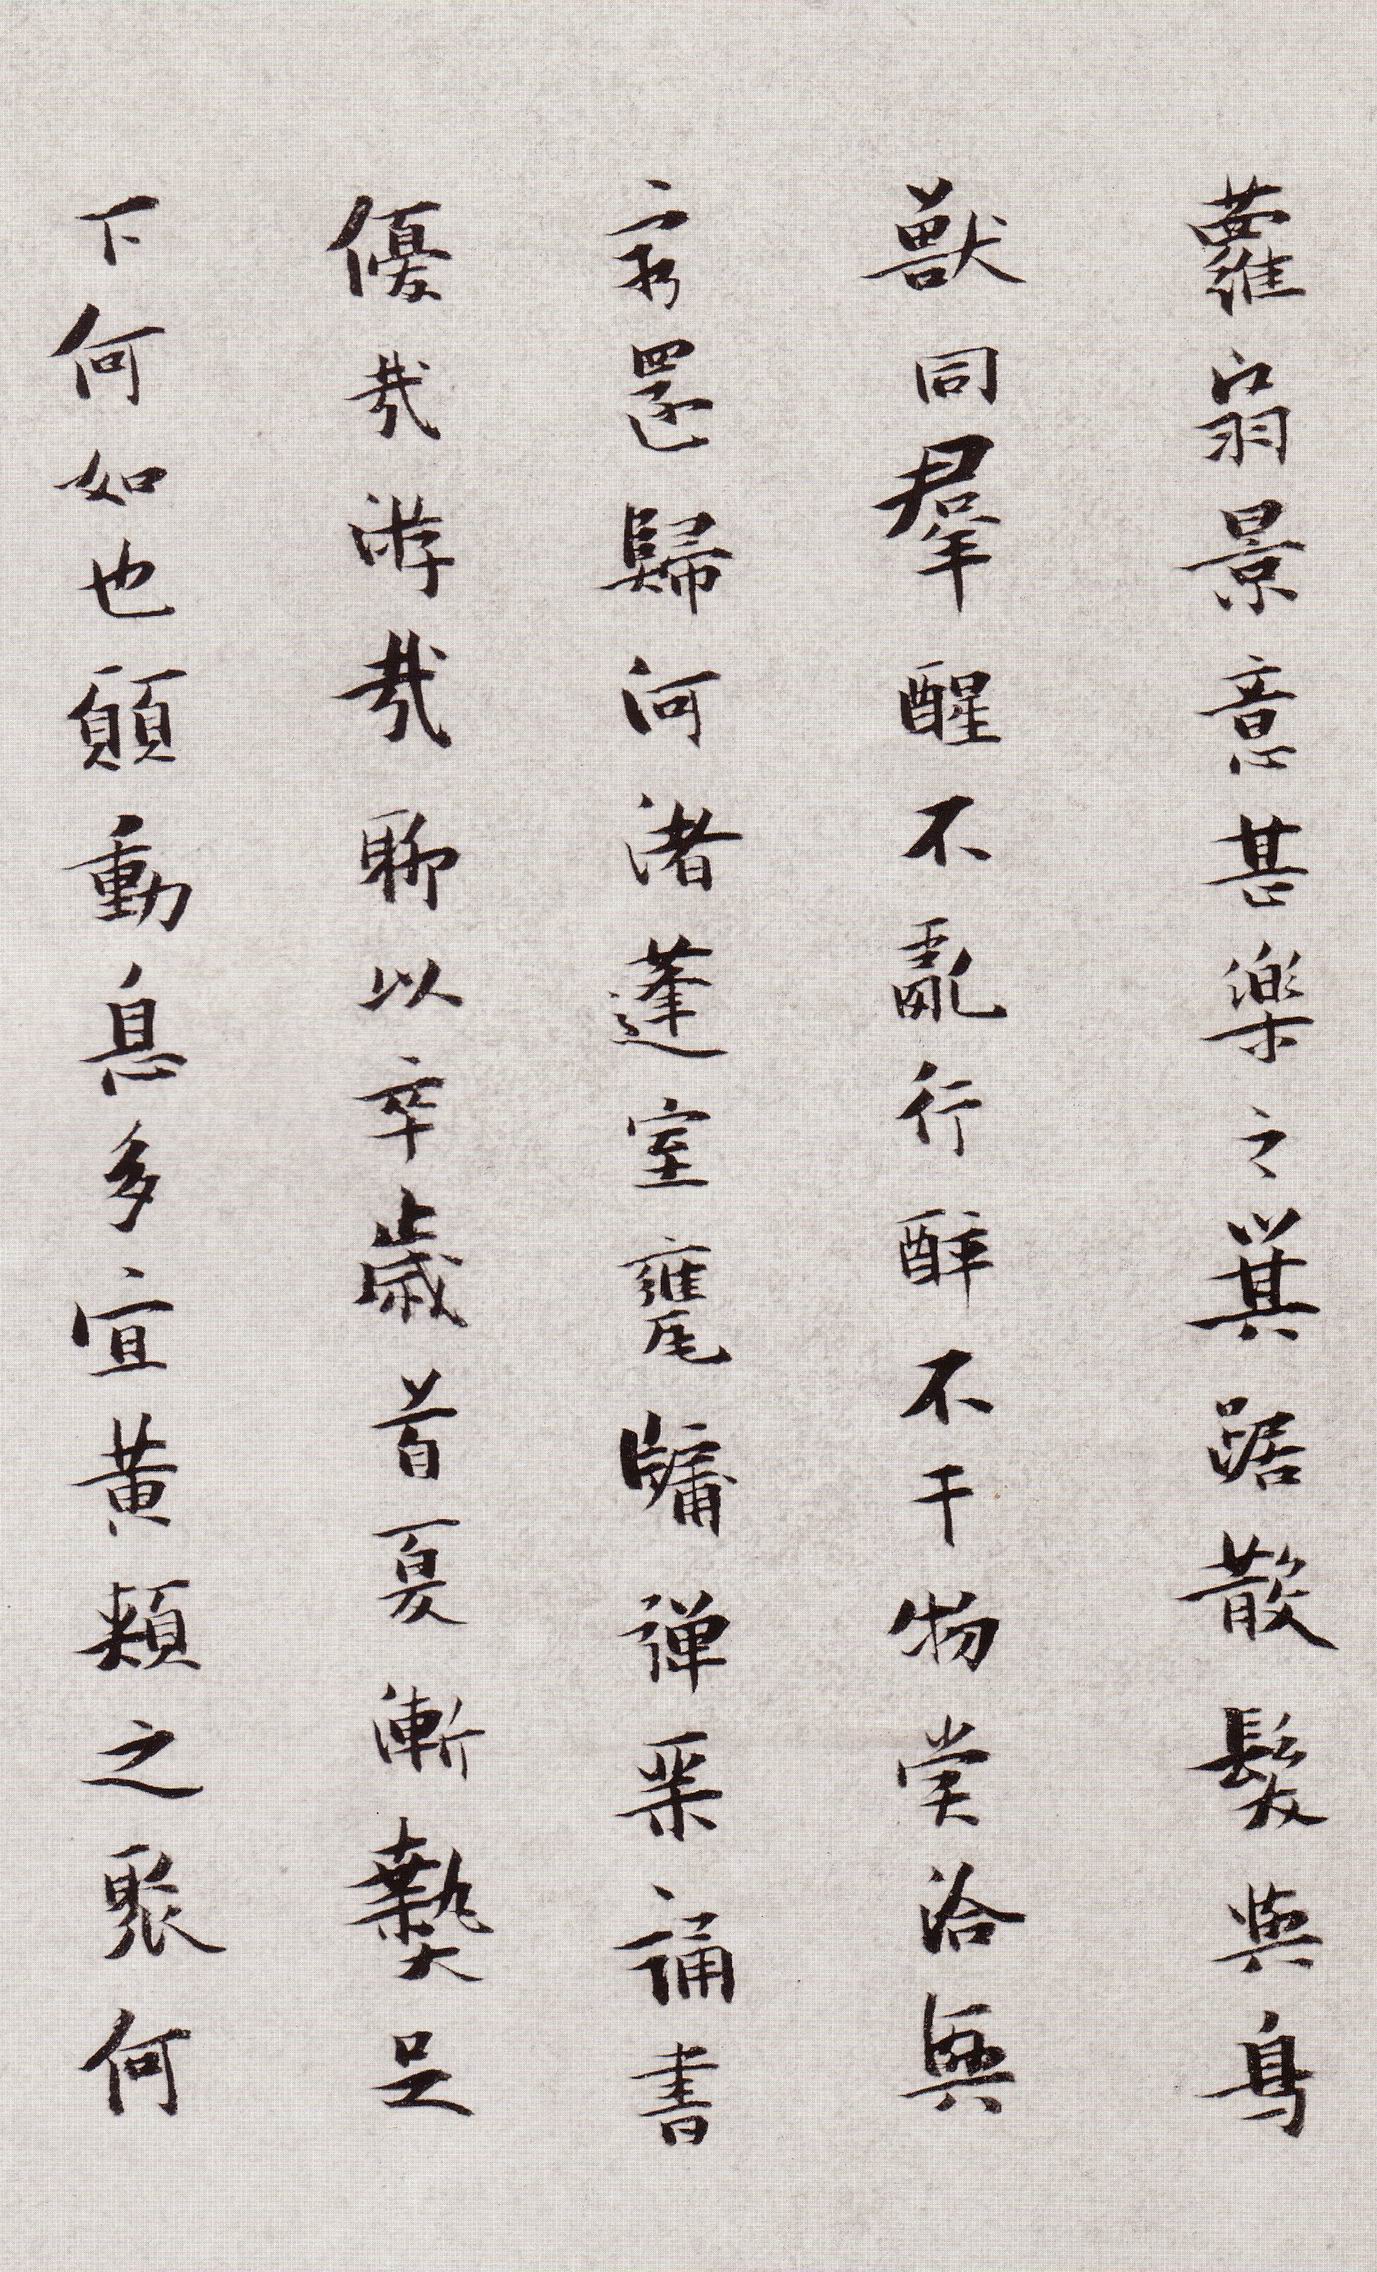 蘿扇景意甚樂之箕踞散髮與鳥
獸同羣醒不亂行醉不干物賞洽興
窮還歸河渚蓬室甕牖彈琹誦書
優哉游哉聊以卒歲首夏漸熱足
下何如也願動息多宜黃頰之聚何